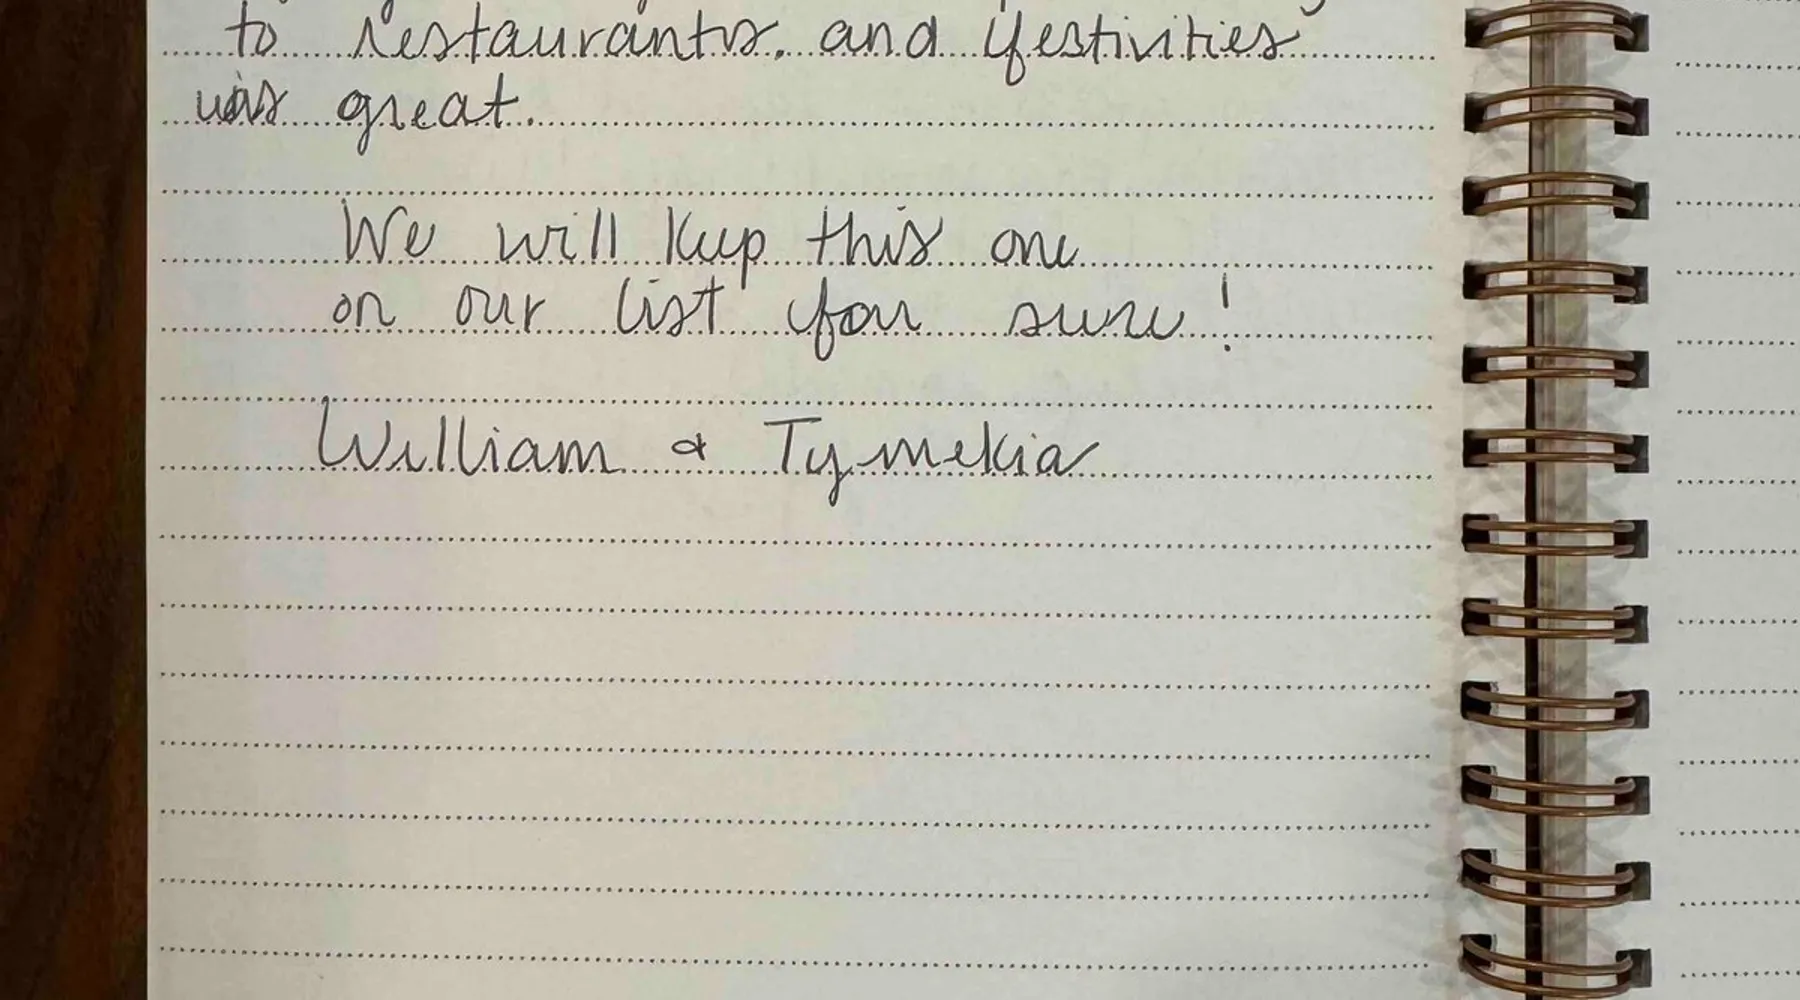 to restaurants. and festivities
was great.
We will keep this one
on our list for sure!
William & Tymekia